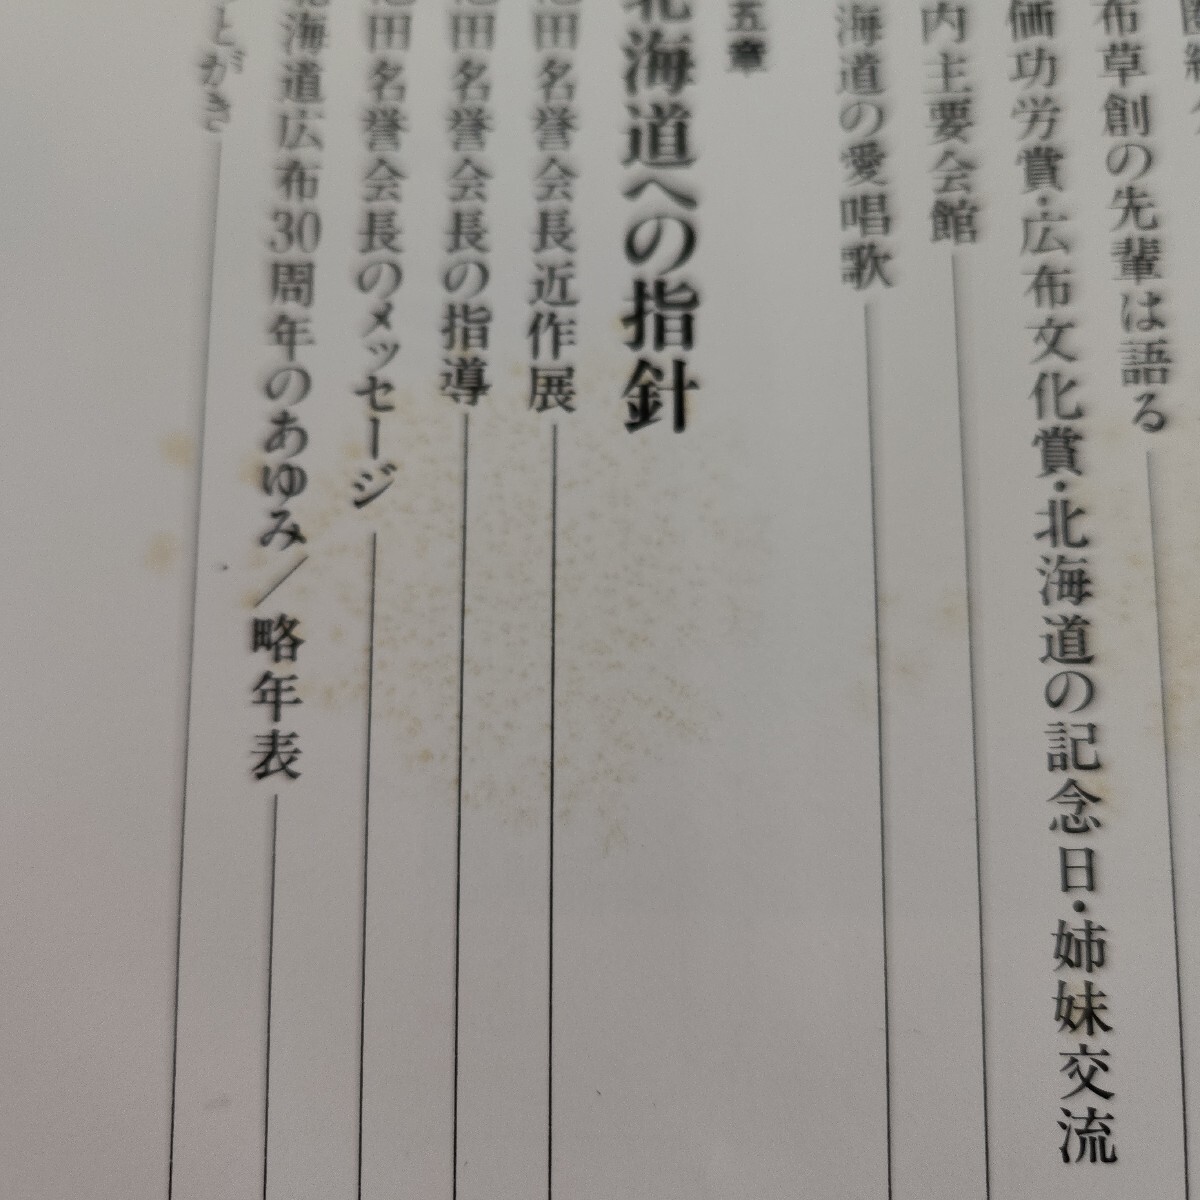 布草創の先輩は語る
価功労賞・広布文化賞・北海道の記念日・姉妹交流
内主要会館
海道の愛唱歌
五章
北海道への指針
池田名誉会長近作展
池田名誉会長の指導
池田名誉会長のメッセージ
北海道広布30周年のあゆみ／略年表
とがき